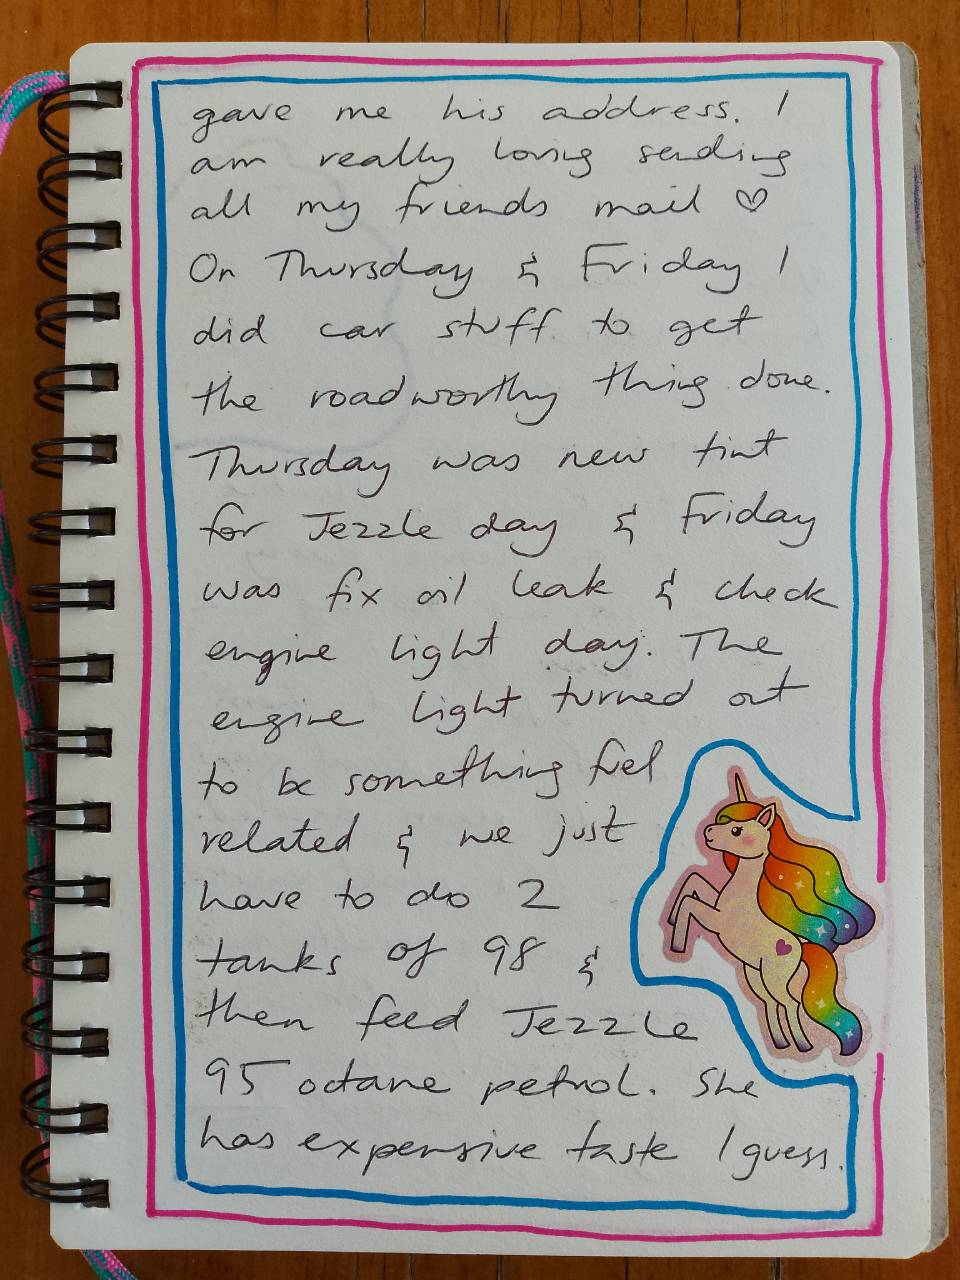 gave me his address. I
am really loving sending
all my friends mail ♡
On Thursday & Friday I
did car stuff to get
the roadworthy thing done.
Thursday was new tint
for Jezzle day & Friday
was fix oil leak & check
engine light day. The
engine light turned out
to be something fuel
related & we just
have to do 2
tanks of 98 &
then feed Jezzle
95 octane petrol. She
has expensive taste I guess.